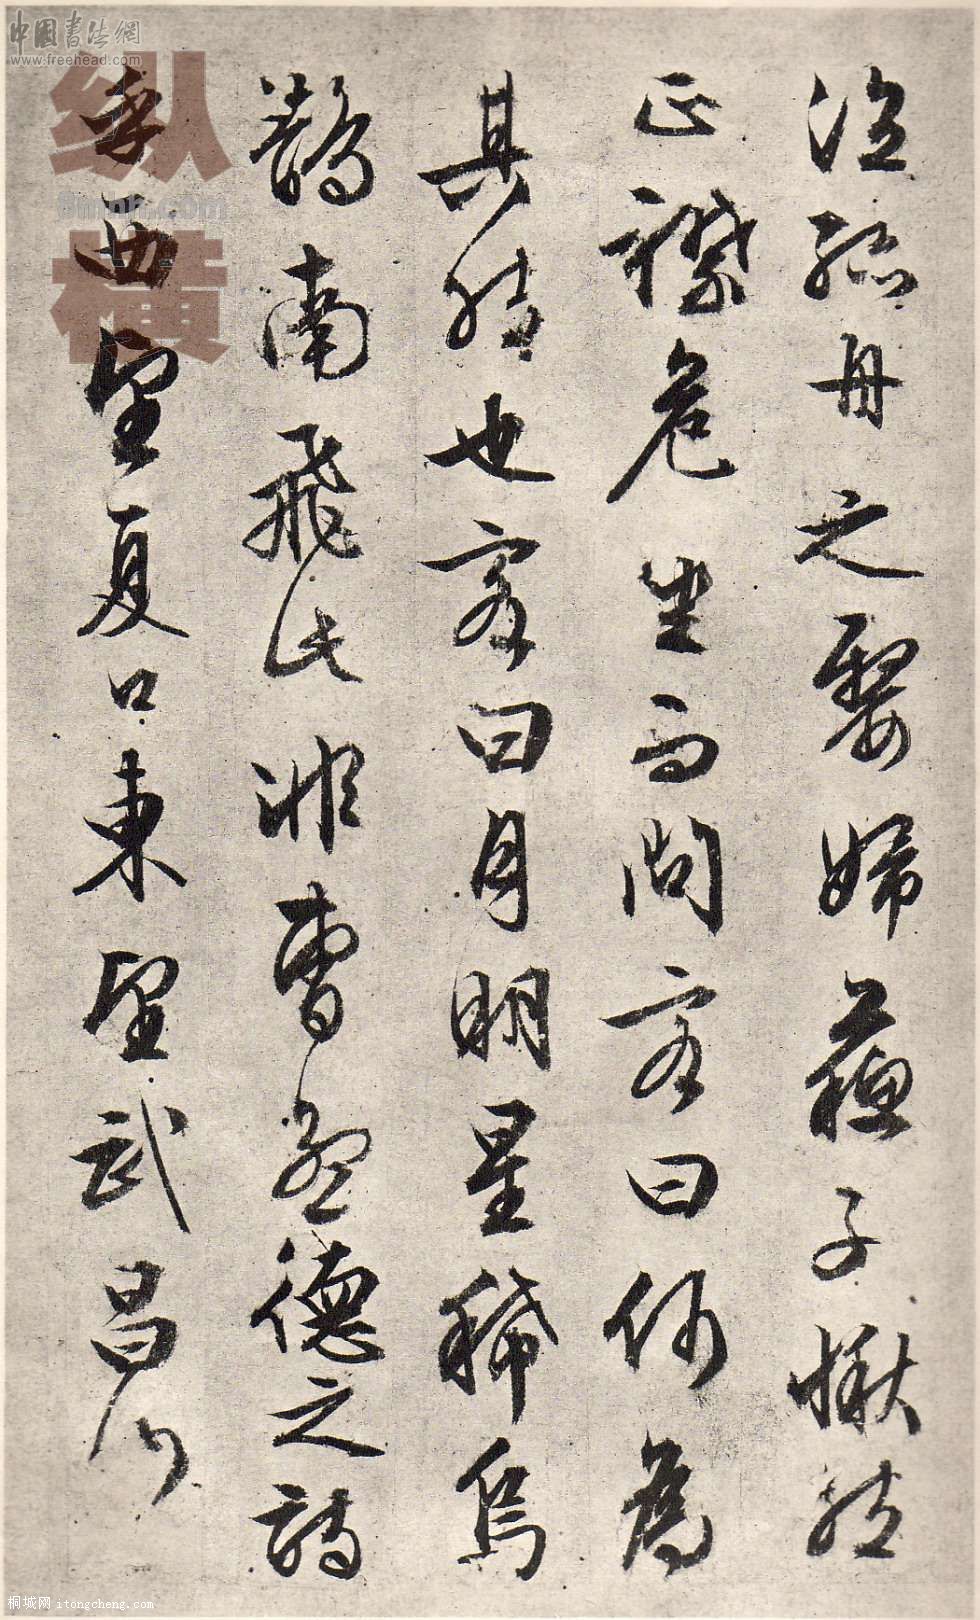 泣孤舟之嫠婦蘇子愀然
正襟危坐而問客曰何為
其然也客曰月明星稀烏
鵲南飛此非曹孟德之詩
乎西望夏口東望武昌山
中國書法網
www.freehead.com
纵
横
桐城网 itongcheng.com